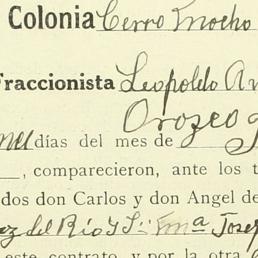 Colonia Cerro Mocho
Fraccionista Leopoldo
Orozco
días del mes de
, comparecieron, ante los t
dos don Carlos y don Angel de
ez del Río y Sri Ma Josef
este contrato, y por la otra